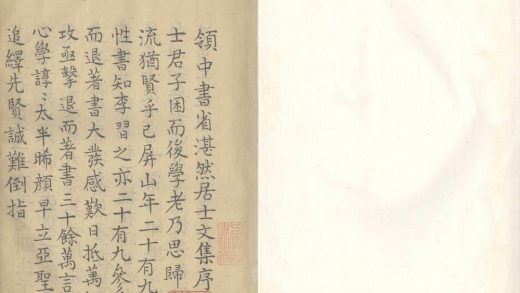 領中書省湛然居士文集序
士君子困而後學老乃思歸
流猶賢乎已屏山年二十有九
性書知李習之亦二十有九參
而退著書大發感歎日抵萬
攻亟擊退而著書三十餘萬言
心學諄〻太半晞顏早立亞聖
追繹先賢誠難倒指